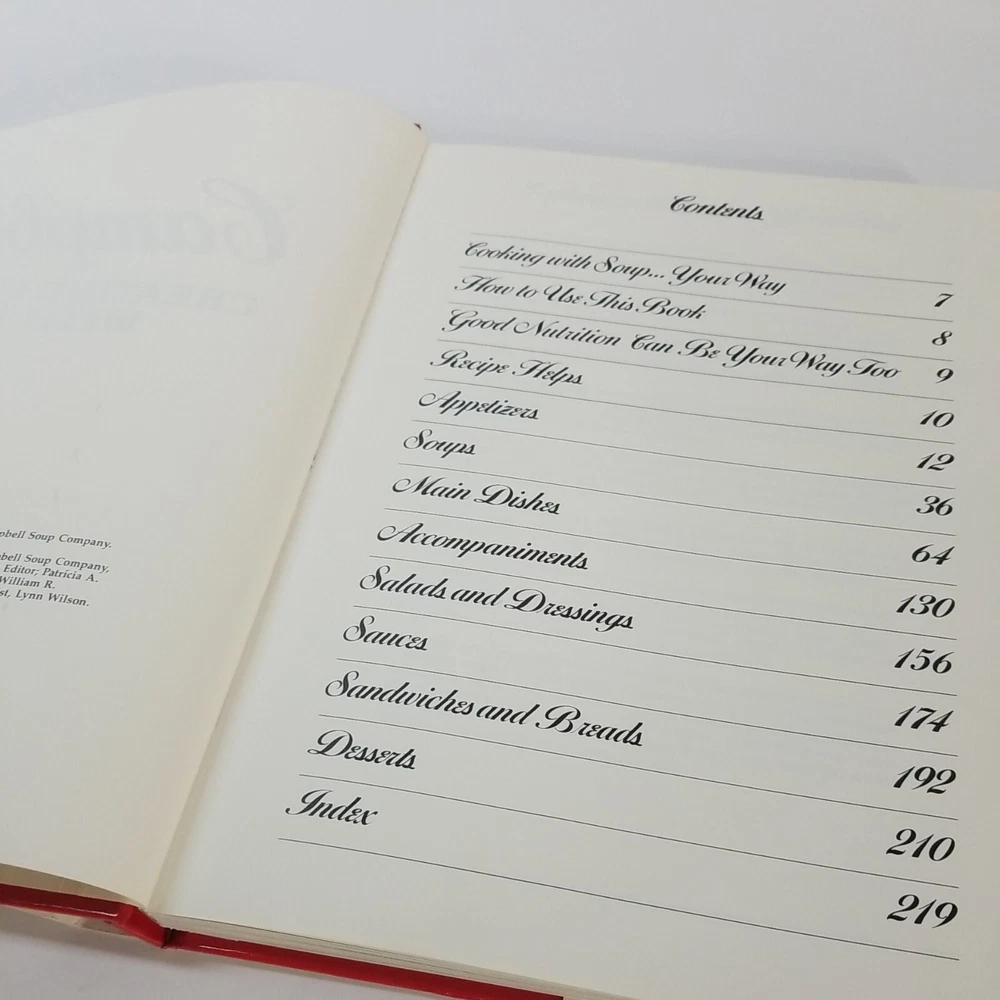 pbell Soup Company.
bell Soup Company,
Editor; Patricia A.
William R.
st, Lynn Wilson.
Contents
Cooking with Soup... Your Way 7
How to Use This Book 8
Good Nutrition Can Be Your Way Too 9
Recipe Helps 10
Appetizers 12
Soups 36
Main Dishes 64
Accompaniments 130
Salads and Dressings 156
Sauces 174
Sandwiches and Breads 192
Desserts 210
Index 219